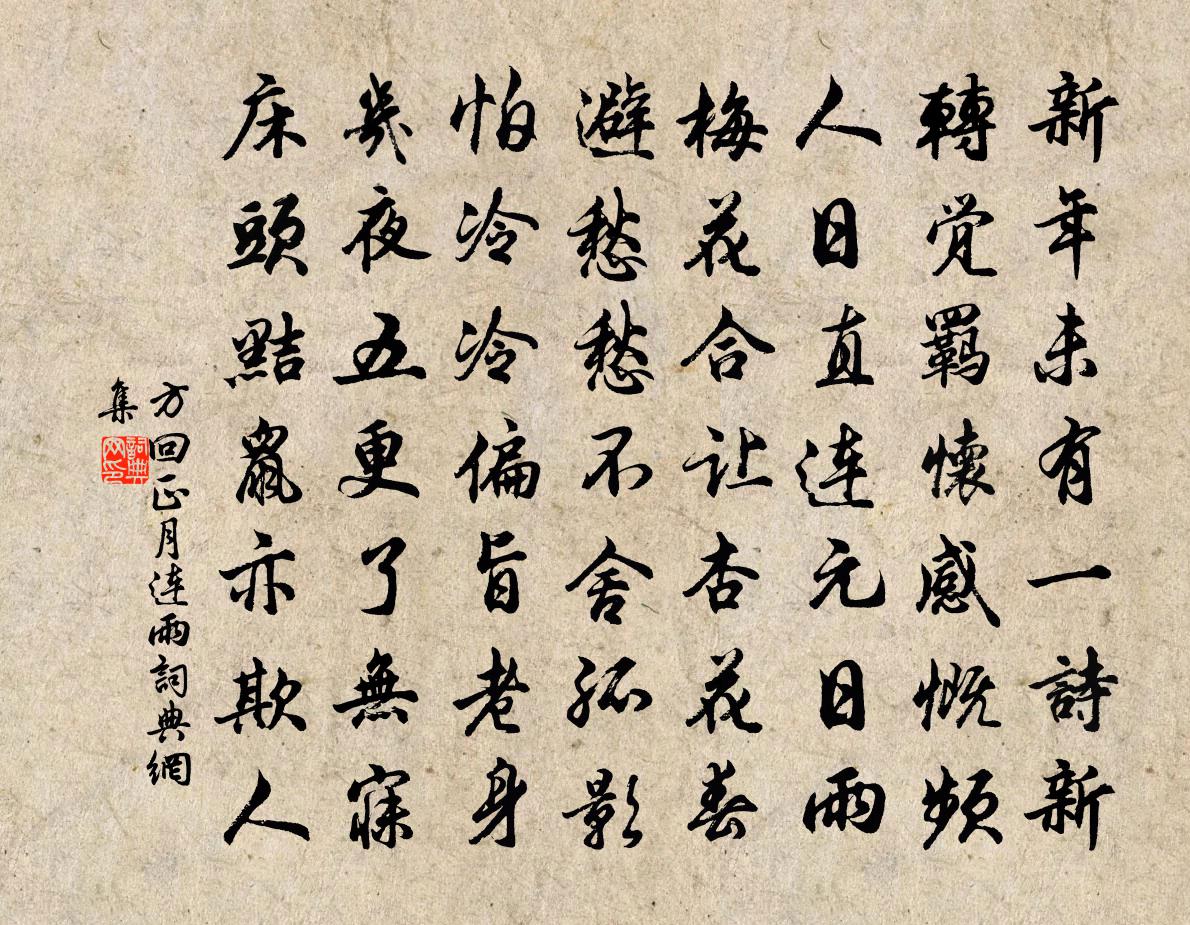 新年未有一詩新
轉覺羁懷感慨頻
人日直连元日雨
梅花合让杏花春
避愁愁不舍孤影
怕冷冷偏旨老身
幾夜五更了無寐
床頭黠鼠亦欺人
方回正月连雨詞典網
集
詞典